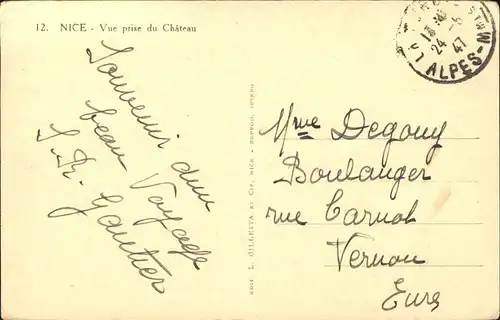 12. NICE - Vue prise du Château
Souvenir d'un
beau Voyage
S. R. Gautier
EDIT L. GILLETTA ET Cie, NICE
24 -6
47
ALPES-M
Mme Degouy
Boulanger
rue Carnot
Vernon
Eure